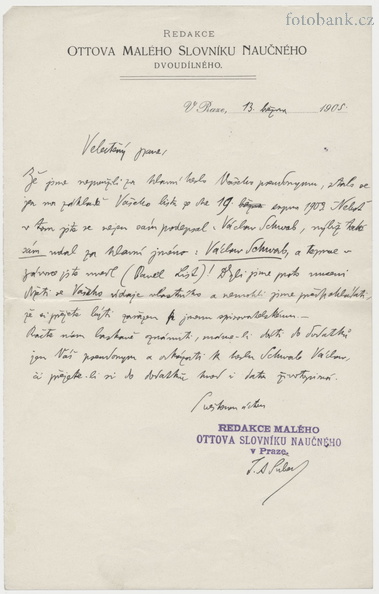 fotobank.cz
REDAKCE
OTTOVA MALÉHO SLOVNÍKU NAUČNÉHO
DVOUDÍLNÉHO.
V Praze, 13. března 1905.
Velectěný pane,
Že jsme nepojali za hlavní heslo Vašeho pseudonymu, stalo se
jen na základě Vašeho listu ze dne 19. srpna 1903. Neboť
v tom jste se nejen sám podepsal: Václav Schwab, nýbrž také
sám udal za hlavní jméno: Václav Schwab, a teprve
v závorce jste uvedl (Pavel )! Byli jsme proto
se Vašeho údaje a nemohli jsme předpokládati,
že si přejete býti zařazen k jménu spisovatelskému.
Račte nám laskavě oznámiti, máme-li dáti do dodatků
jen Váš pseudonym a odkázati k heslu Schwab Václav,
či přejete-li si do dodatků i data životopisná.
S úctou
REDAKCE MALÉHO
OTTOVA SLOVNÍKU NAUČNÉHO
v Praze.